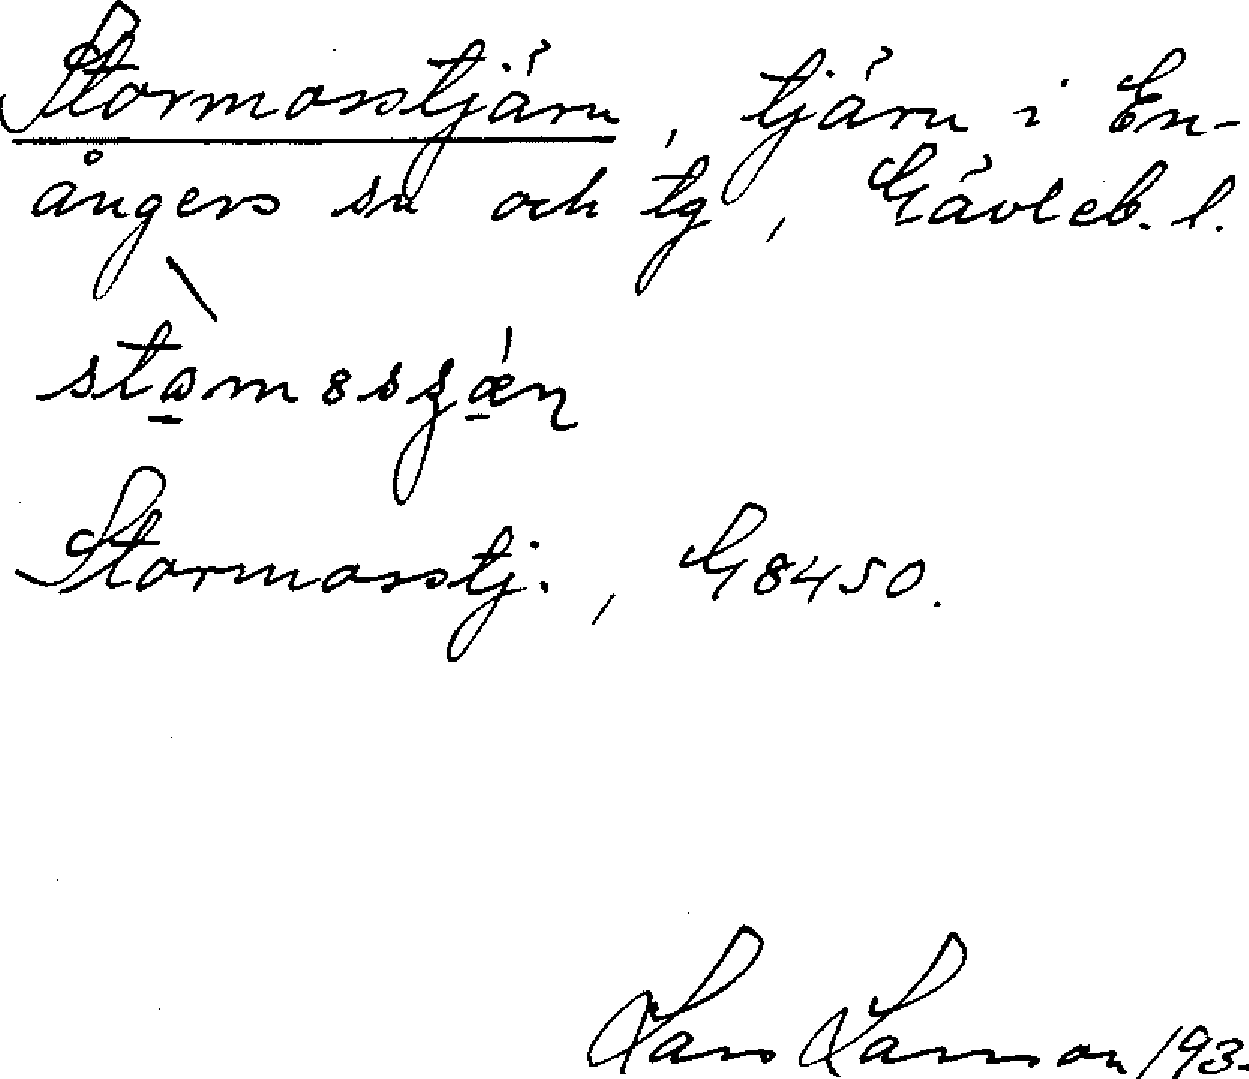 Stormosstjärn, tjärn i En-
ångers sn och tg, Gävleb. l.
Stormosstj., G8450.
Lars Larsson 193-